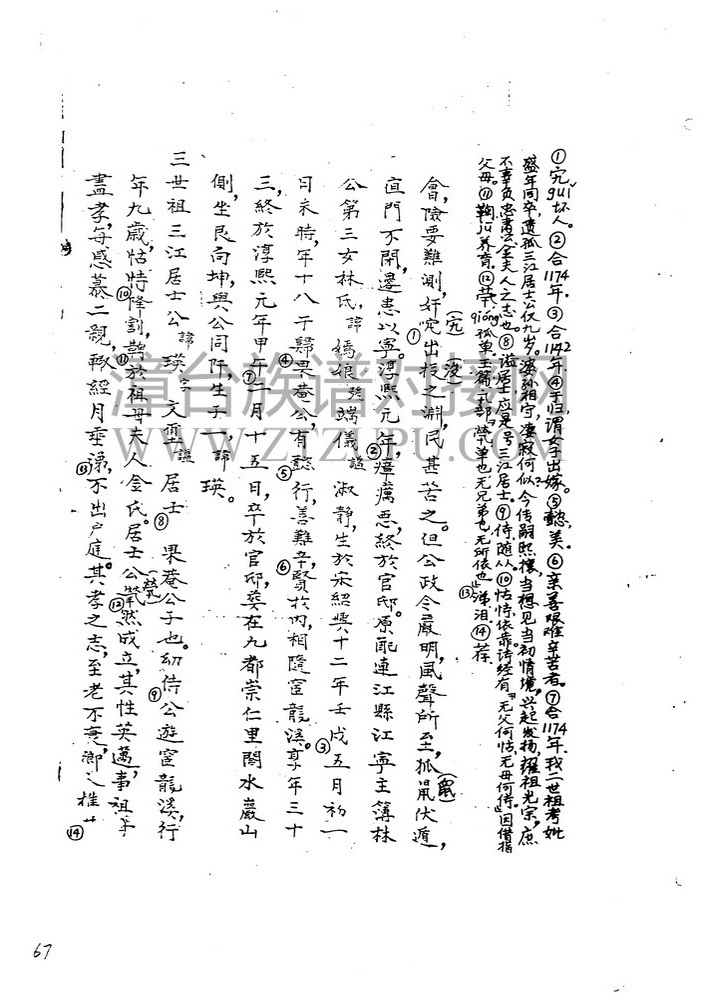 ①宄guǐ坏人。②合1174年.③合1142年.④于归,谓女子出嫁。⑤懿,美。⑥亲善艰难辛苦者。⑦合1174年.我二世祖考妣
盛年同卒,遗孤三江居士公仅九岁。婆孙相守,凄寂何似?今传嗣熙攘,当想见当初情境,兴起发扬,耀祖光宗,庶
不辜负忠肃公金夫人之志也。⑧谥居士应是号三江居士。⑨侍,随从。⑩怙恃,依靠.诗经有“无父何怙,无母何恃”因借指
父母。⑪鞠,养育。⑫茕qióng孤单.玉篇孔部:“茕,单也无兄弟也无所依也”⑬涕泪.⑭荐
會,險要難測,奸宄出①(宄)没(没)之淵,民甚苦之。但公政令嚴明,風聲所至,狐鼠(鼠)伏遁,
直門不閉,邊患以寧。淳熙元年②瘴癘惡,終於官邸。原配連江縣江寧主簿林
公第三女林氏,諱嫣娘號端儀諡淑靜,生於宋紹興十二年壬戌③五月初一
日未時,年十八于歸④果菴公,有懿⑤行,善難辛⑥,賢於内,相隨宦龍溪。享年三十
三,終於淳熙元年甲午⑦二月十五日,卒於官邸,葬在九都崇仁里關水巖山
側,坐艮向坤,與公同阡,生子一,諱瑛。
三世祖三江居士公諱瑛字文璽諡居士⑧果菴公子也。幼侍⑨公遊宦龍溪,行
年九歲,怙恃⑩條割,鞠⑪於祖母夫人金氏。居士公煢(茕)⑫然成立,其性英邁,事祖母
盡孝,每感慕二親,輒經月垂淚⑬,不出戶庭。其孝之志,至老不衰,鄉人推⑭
67
漳台族谱对接网
WWW.ZTZUPU.COM